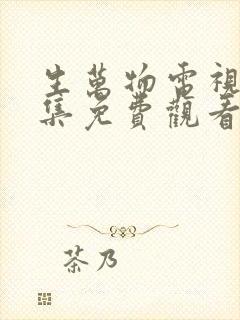 生萬物電視
集免費觀看
茶乃